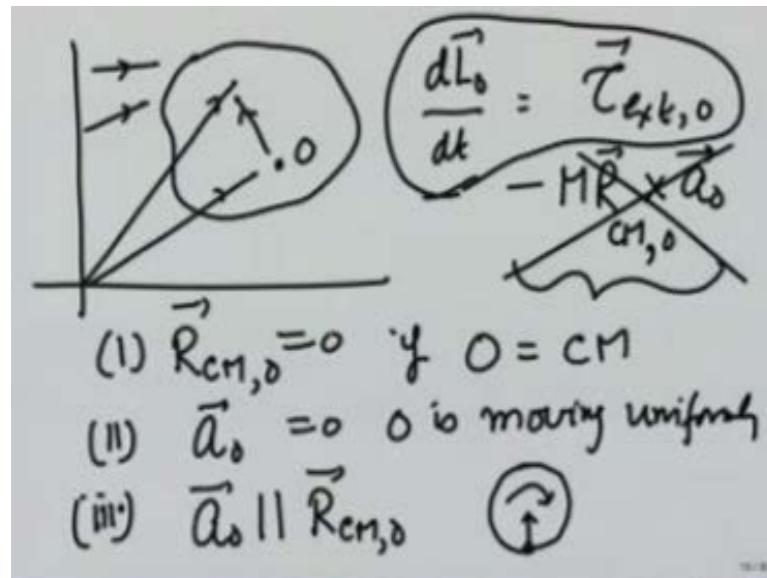 . O
dL⃗₀/dt = τ⃗ext,0
- MR⃗CM,0 × a⃗₀
(I) R⃗CM,0 = 0 if O = CM
(II) a⃗₀ = 0 O is moving uniformly
(iii) a⃗₀ || R⃗CM,0